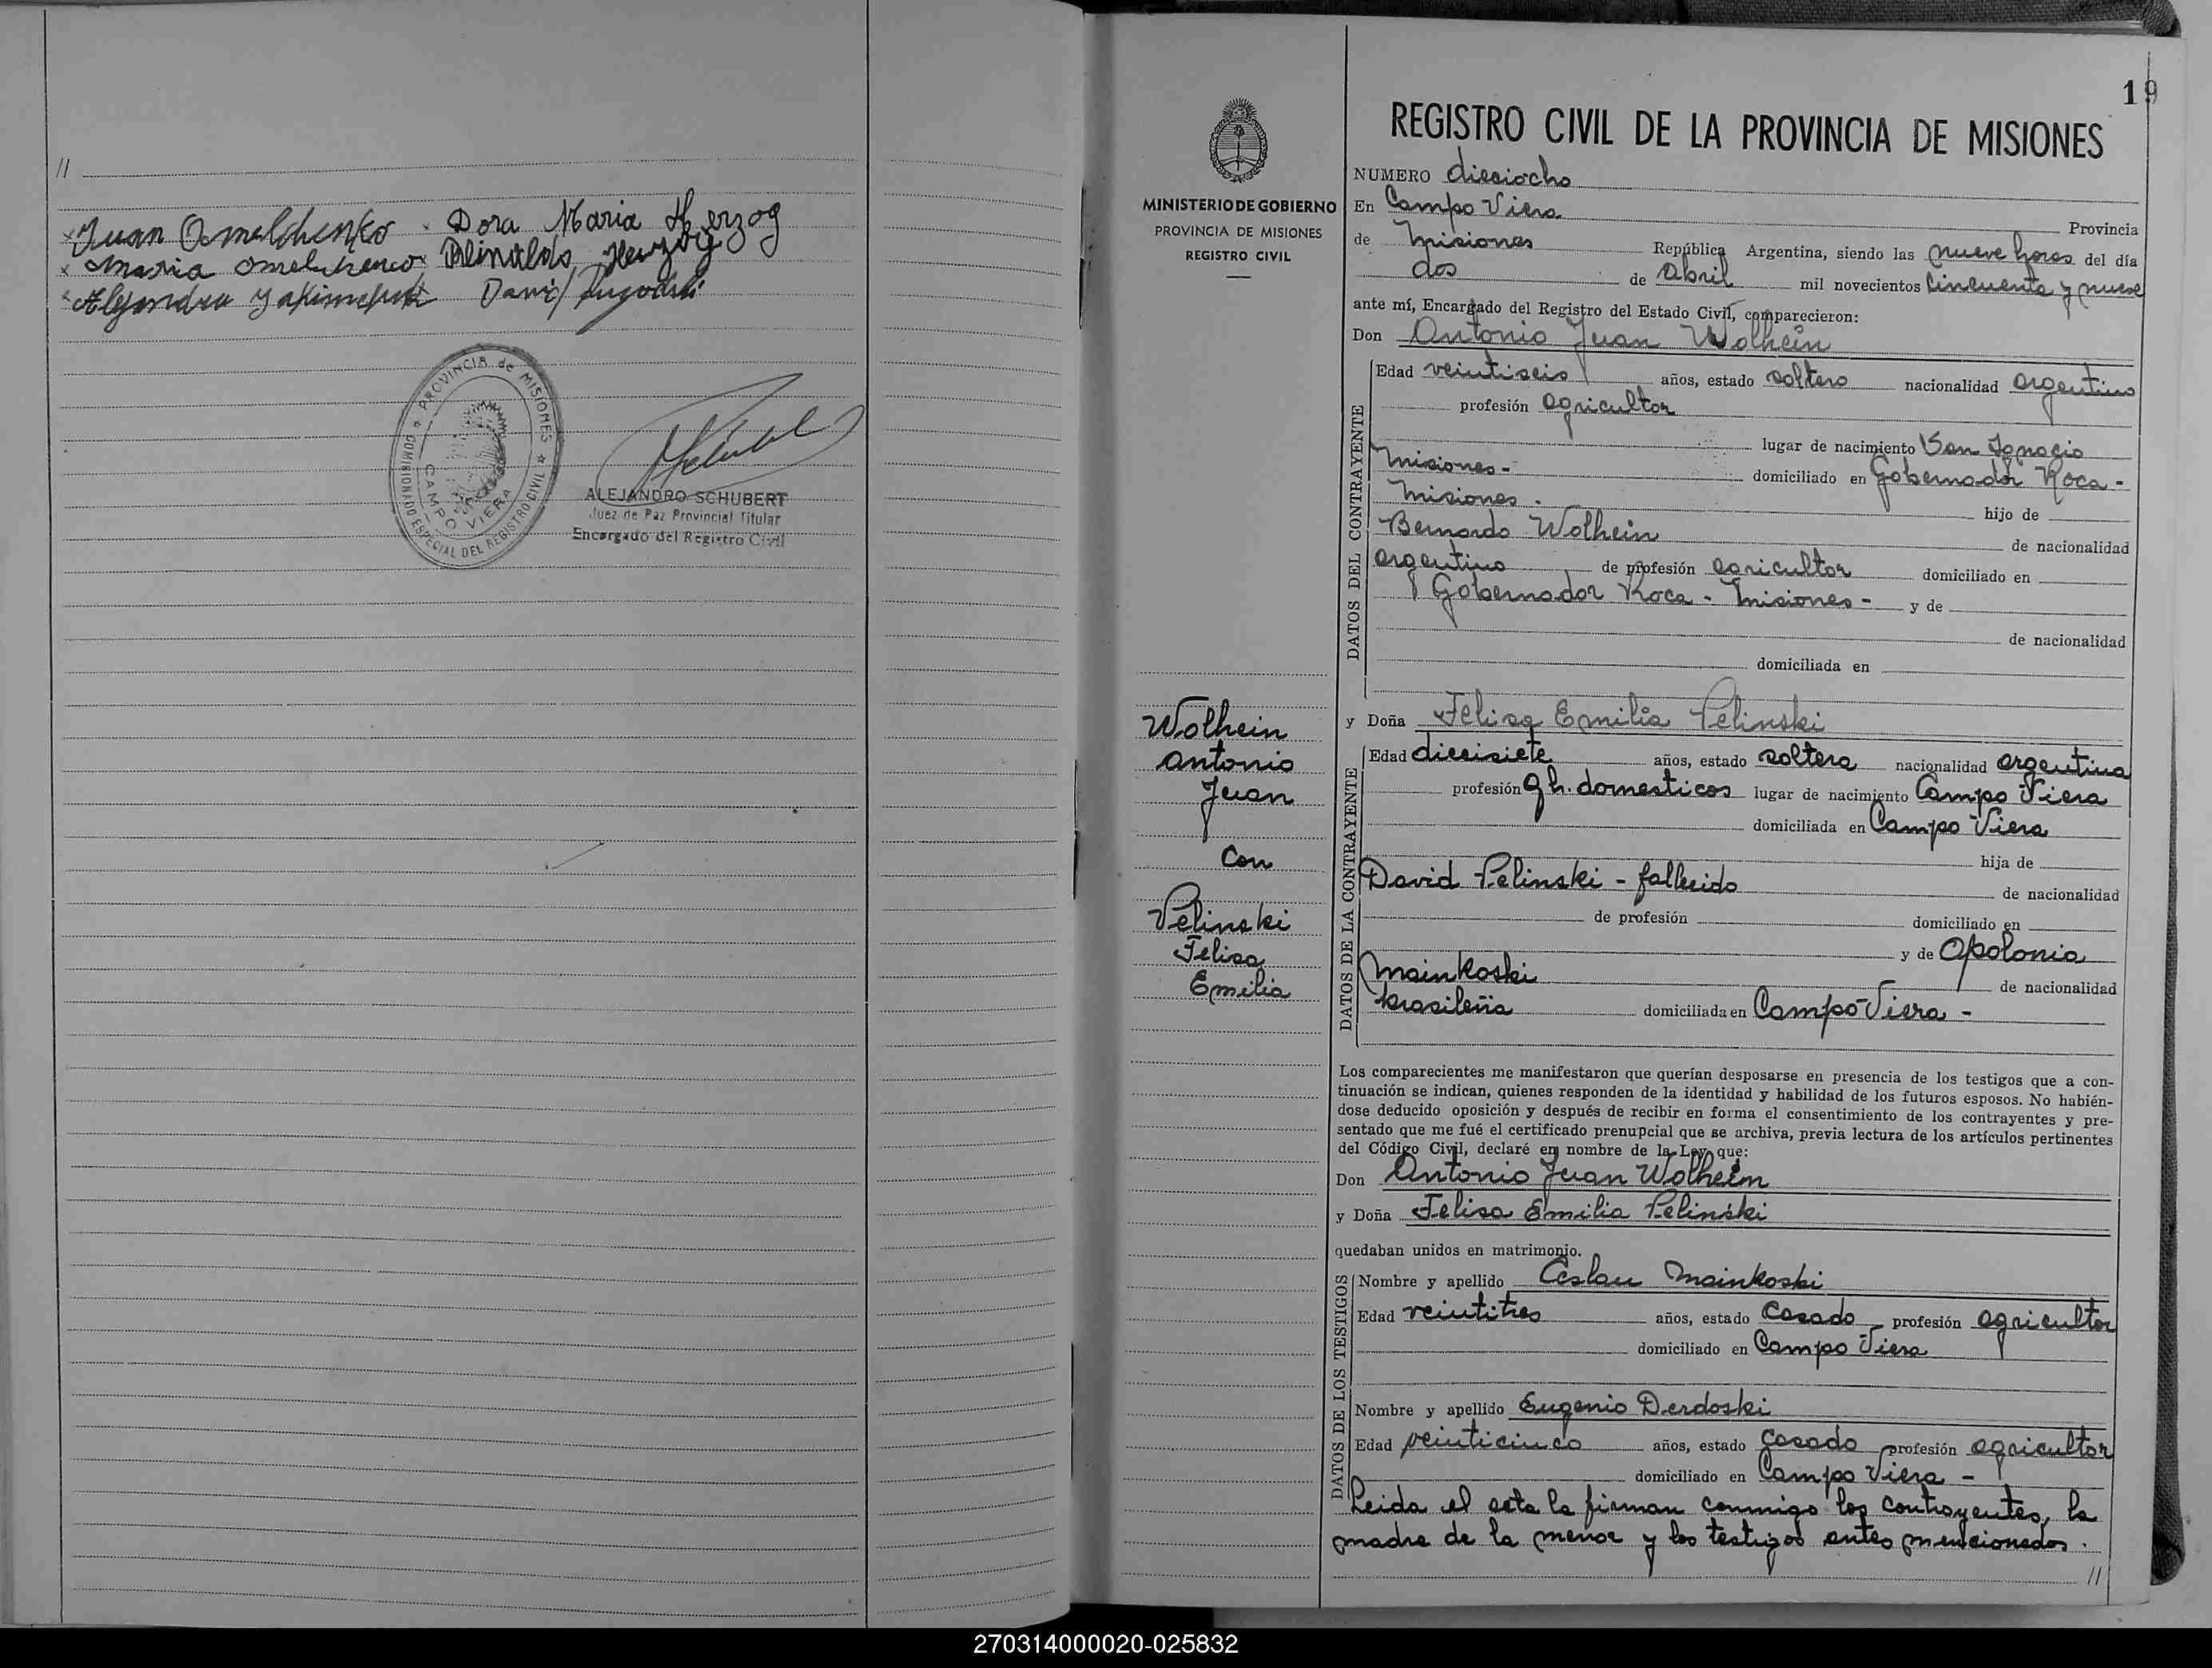 //
x Juan Omelchenko x Dora Maria Herzog
x Maria Omelchenco x Reinaldo Herzog
x Alejandro David
PROVINCIA de MISIONES
COMISIONADO ESPECIAL DEL REGISTRO CIVIL
CAMPO VIERA
ALEJANDRO SCHUBERT
Juez de Paz Provincial Titular
Encargado del Registro Civil
19
MINISTERIO DE GOBIERNO
PROVINCIA DE MISIONES
REGISTRO CIVIL
Wolhein
Antonio
Juan
con
Pelinski
Felisa
Emilia
REGISTRO CIVIL DE LA PROVINCIA DE MISIONES
NUMERO dieciocho
En Campo Viera Provincia
de Misiones República Argentina, siendo las nueve horas del día
dos de Abril mil novecientos cincuenta y nueve
ante mí, Encargado del Registro del Estado Civil, comparecieron:
Don Antonio Juan Wolhein
DATOS DEL CONTRAYENTE
Edad veintiseis años, estado soltero nacionalidad argentino
profesión agricultor
lugar de nacimiento San Ignacio
Misiones - domiciliado en Gobernador Roca -
Misiones - hijo de
Bernardo Wolhein de nacionalidad
argentino de profesión agricultor domiciliado en
Gobernador Roca - Misiones - y de
de nacionalidad
domiciliada en
y Doña Felisa Emilia Pelinski
DATOS DE LA CONTRAYENTE
Edad diecisiete años, estado soltera nacionalidad argentina
profesión q h. domesticos lugar de nacimiento Campo Viera
domiciliada en Campo Viera
hija de
David Pelinski - fallecido de nacionalidad
de profesión domiciliado en
y de Apolonia
Mainkoski de nacionalidad
brasileña domiciliada en Campo Viera -
Los comparecientes me manifestaron que querían desposarse en presencia de los testigos que a con-
tinuación se indican, quienes responden de la identidad y habilidad de los futuros esposos. No habién-
dose deducido oposición y después de recibir en forma el consentimiento de los contrayentes y pre-
sentado que me fué el certificado prenupcial que se archiva, previa lectura de los artículos pertinentes
del Código Civil, declaré en nombre de la Ley que:
Don Antonio Juan Wolhein
y Doña Felisa Emilia Pelinski
quedaban unidos en matrimonio.
DATOS DE LOS TESTIGOS
Nombre y apellido Ceslau Mainkoski
Edad veintitres años, estado casado profesión agricultor
domiciliado en Campo Viera
Nombre y apellido Eugenio Derdoski
Edad veinticinco años, estado casado profesión agricultor
domiciliado en Campo Viera -
Leida el acta la firman conmigo los contrayentes, la
madre de la menor y los testigos antes mencionados.
//
270314000020-025832